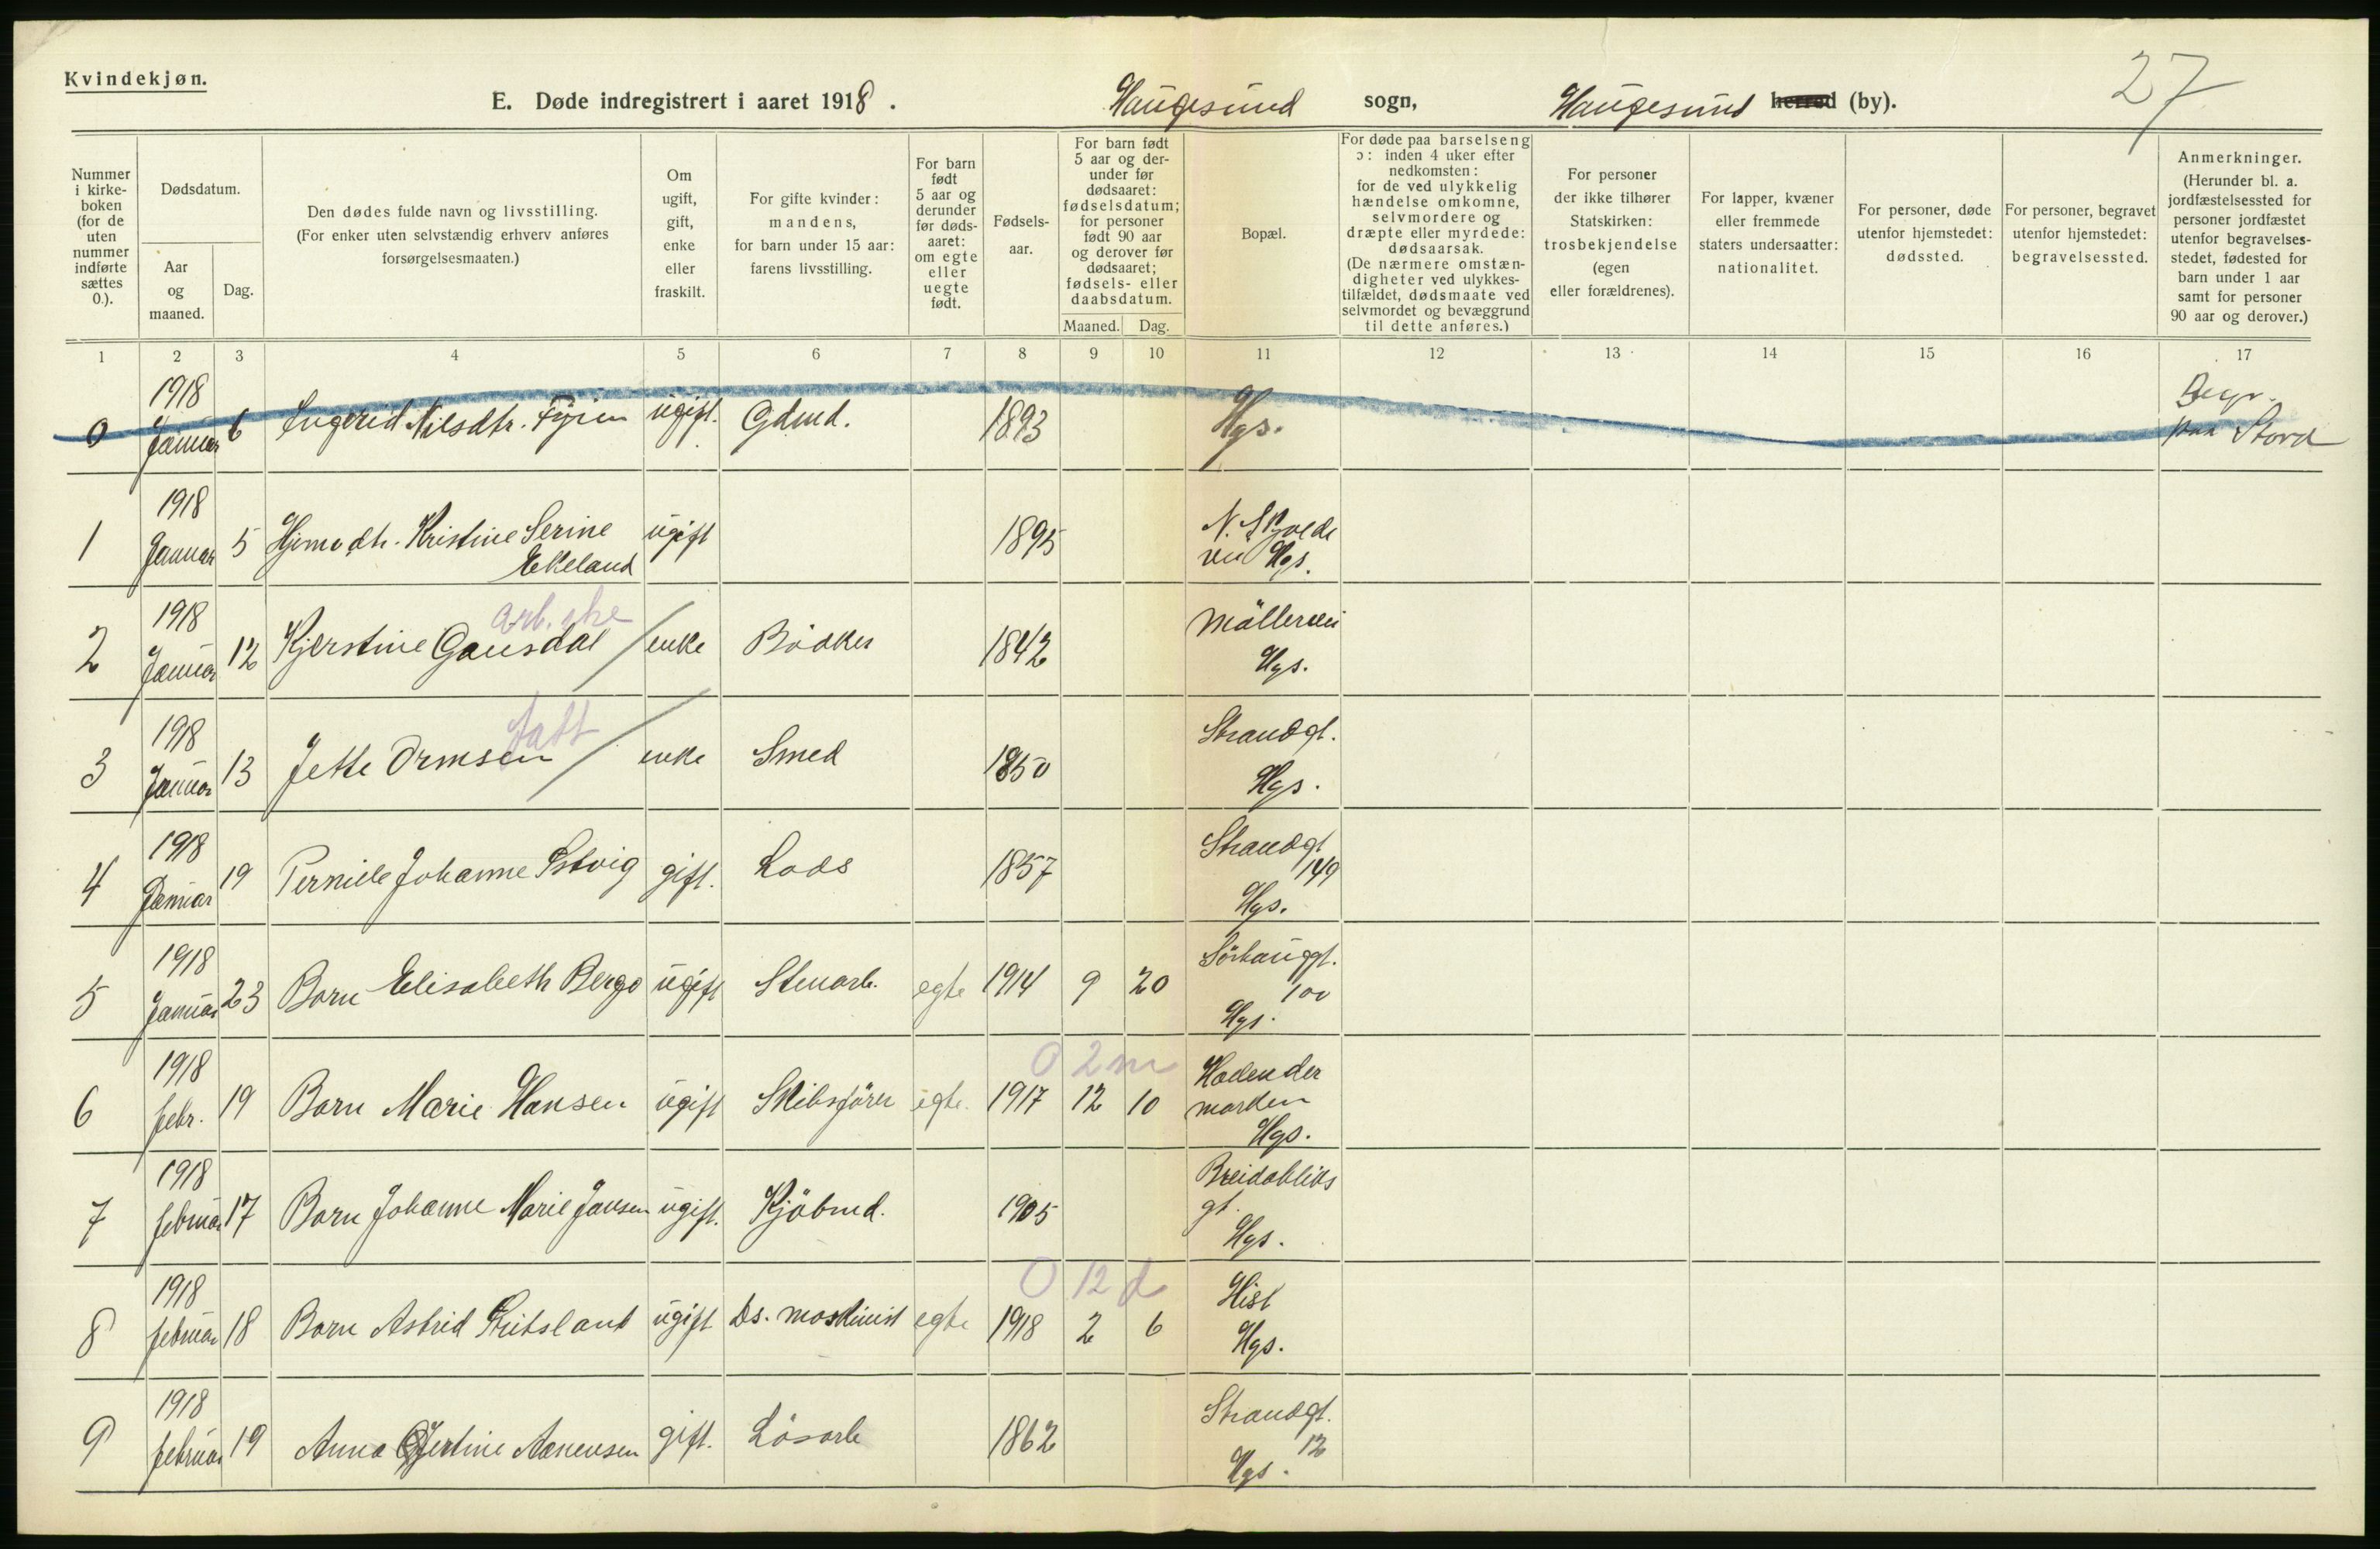 Kvindekjøn.
27
E. Døde indregistrert i aaret 1918. Haugesund sogn, Haugesund herred (by).
Nummer i kirke-boken (for de uten nummer indførte sættes 0.).
Dødsdatum.
Aar og maaned.
Dag.
Den dødes fulde navn og livsstilling. (For enker uten selvstændig erhverv anføres forsørgelsesmaaten.)
Om ugift, gift, enke eller fraskilt.
For gifte kvinder: mandens, for barn under 15 aar: farens livsstilling.
For barn født 5 aar og derunder før døds-aaret: om egte eller uegte født.
Fødsels-aar.
For barn født 5 aar og der-under før dødsaaret: fødselsdatum; for personer født 90 aar og derover før dødsaaret; fødsels- eller daabsdatum.
Maaned. Dag.
Bopæl.
For døde paa barselseng ɔ: inden 4 uker efter nedkomsten: for de ved ulykkelig hændelse omkomne, selvmordere og dræpte eller myrdede: dødsaarsak. (De nærmere omstæn-digheter ved ulykkes-tilfældet, dødsmaate ved selvmordet og bevæggrund til dette anføres.)
For personer der ikke tilhører Statskirken: trosbekjendelse (egen eller forældrenes).
For lapper, kvæner eller fremmede staters undersaatter: nationalitet.
For personer, døde utenfor hjemstedet: dødssted.
For personer, begravet utenfor hjemstedet: begravelsessted.
Anmerkninger. (Herunder bl. a. jordfæstelsessted for personer jordfæstet utenfor begravelses-stedet, fødested for barn under 1 aar samt for personer 90 aar og derover.)
1 2 3 4 5 6 7 8 9 10 11 12 13 14 15 16 17
0 1918 Januar 6 Ingerid Nilsdtr. ugift. Gdmd. 1893 Hgs. Begr. paa Stord
1 1918 Januar 5 Kristine Serine Ekeland ugift 1895 N. Skjolde vei Hgs.
2 1918 Januar 12 Kjerstine Gausdal arb.ske enke Bödker 1842 Möllervei Hgs.
3 1918 Januar 13 Jette Ormsen fatt enke Smed 1850 Strandgt. Hgs.
4 1918 Januar 19 Pernille Johanne gift. Lods 1857 Strandgt 149 Hgs.
5 1918 Januar 23 Barn Elisabeth Berge ugift Stenarb. egte 1914 9 20 Sörhauggt. 100 Hgs.
0 2 m
6 1918 febr. 19 Barn Marie Hansen ugift Skibsförer egte. 1917 12 10 Hgs.
7 1918 februar 17 Barn Johanne Marie Jansen ugift. Kjöbmd. 1905 Breidabliks gt. Hgs.
0 12 d
8 1918 februar 18 Barn Astrid ugift Ds. maskinist egte 1918 2 6 Hgs.
9 1918 februar 19 Anna Gjertine Aanensen gift. Lösarb 1862 Strandgt. 12 Hgs.